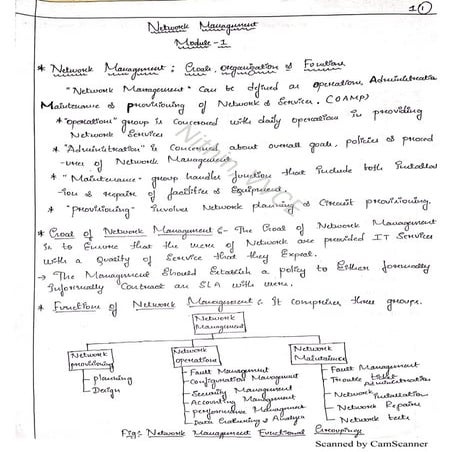 1 (1)
Network Management
Module - 1
* Network Management : Goals, organization & Function
"Network Management" can be defined as operation, Administration
Maintenance & provisioning of Network & Services. (OAMP)
* "operation" group is concerned with daily operation in providing
Network Services
* "Administration" is concerned about overall goals, policies & proced
-ures of Network Management
* "Maintenance" group handles function that include both Installat
-ion & repairs of facilities & Equipment.
* "provisioning" involves Network planning & Circuit provisioning.
* Goal of Network Management :- The Goal of Network Management
is to Ensure that the users of Network are provided IT Services
with a Quality of Service that they Expect.
→ The Management Should Establish a policy to Either formally
Informally Contract an SLA with users.
* Functions of Network Management :- It comprises three groups.
Network
Management
Network
provisioning
Network
operations
Network
Maintaince
→ planning
→ Design
→ Fault Management
→ Configuration Management
→ Security Management
→ Accounting Management
→ performance Management
→ Data Gathering & Analyze
→ Fault Management
→ Trouble ticket
Administration
→ Network
Installation
→ Network Repairs
→ Network tests
Fig:- Network Management Functional Groupings
Scanned by CamScanner